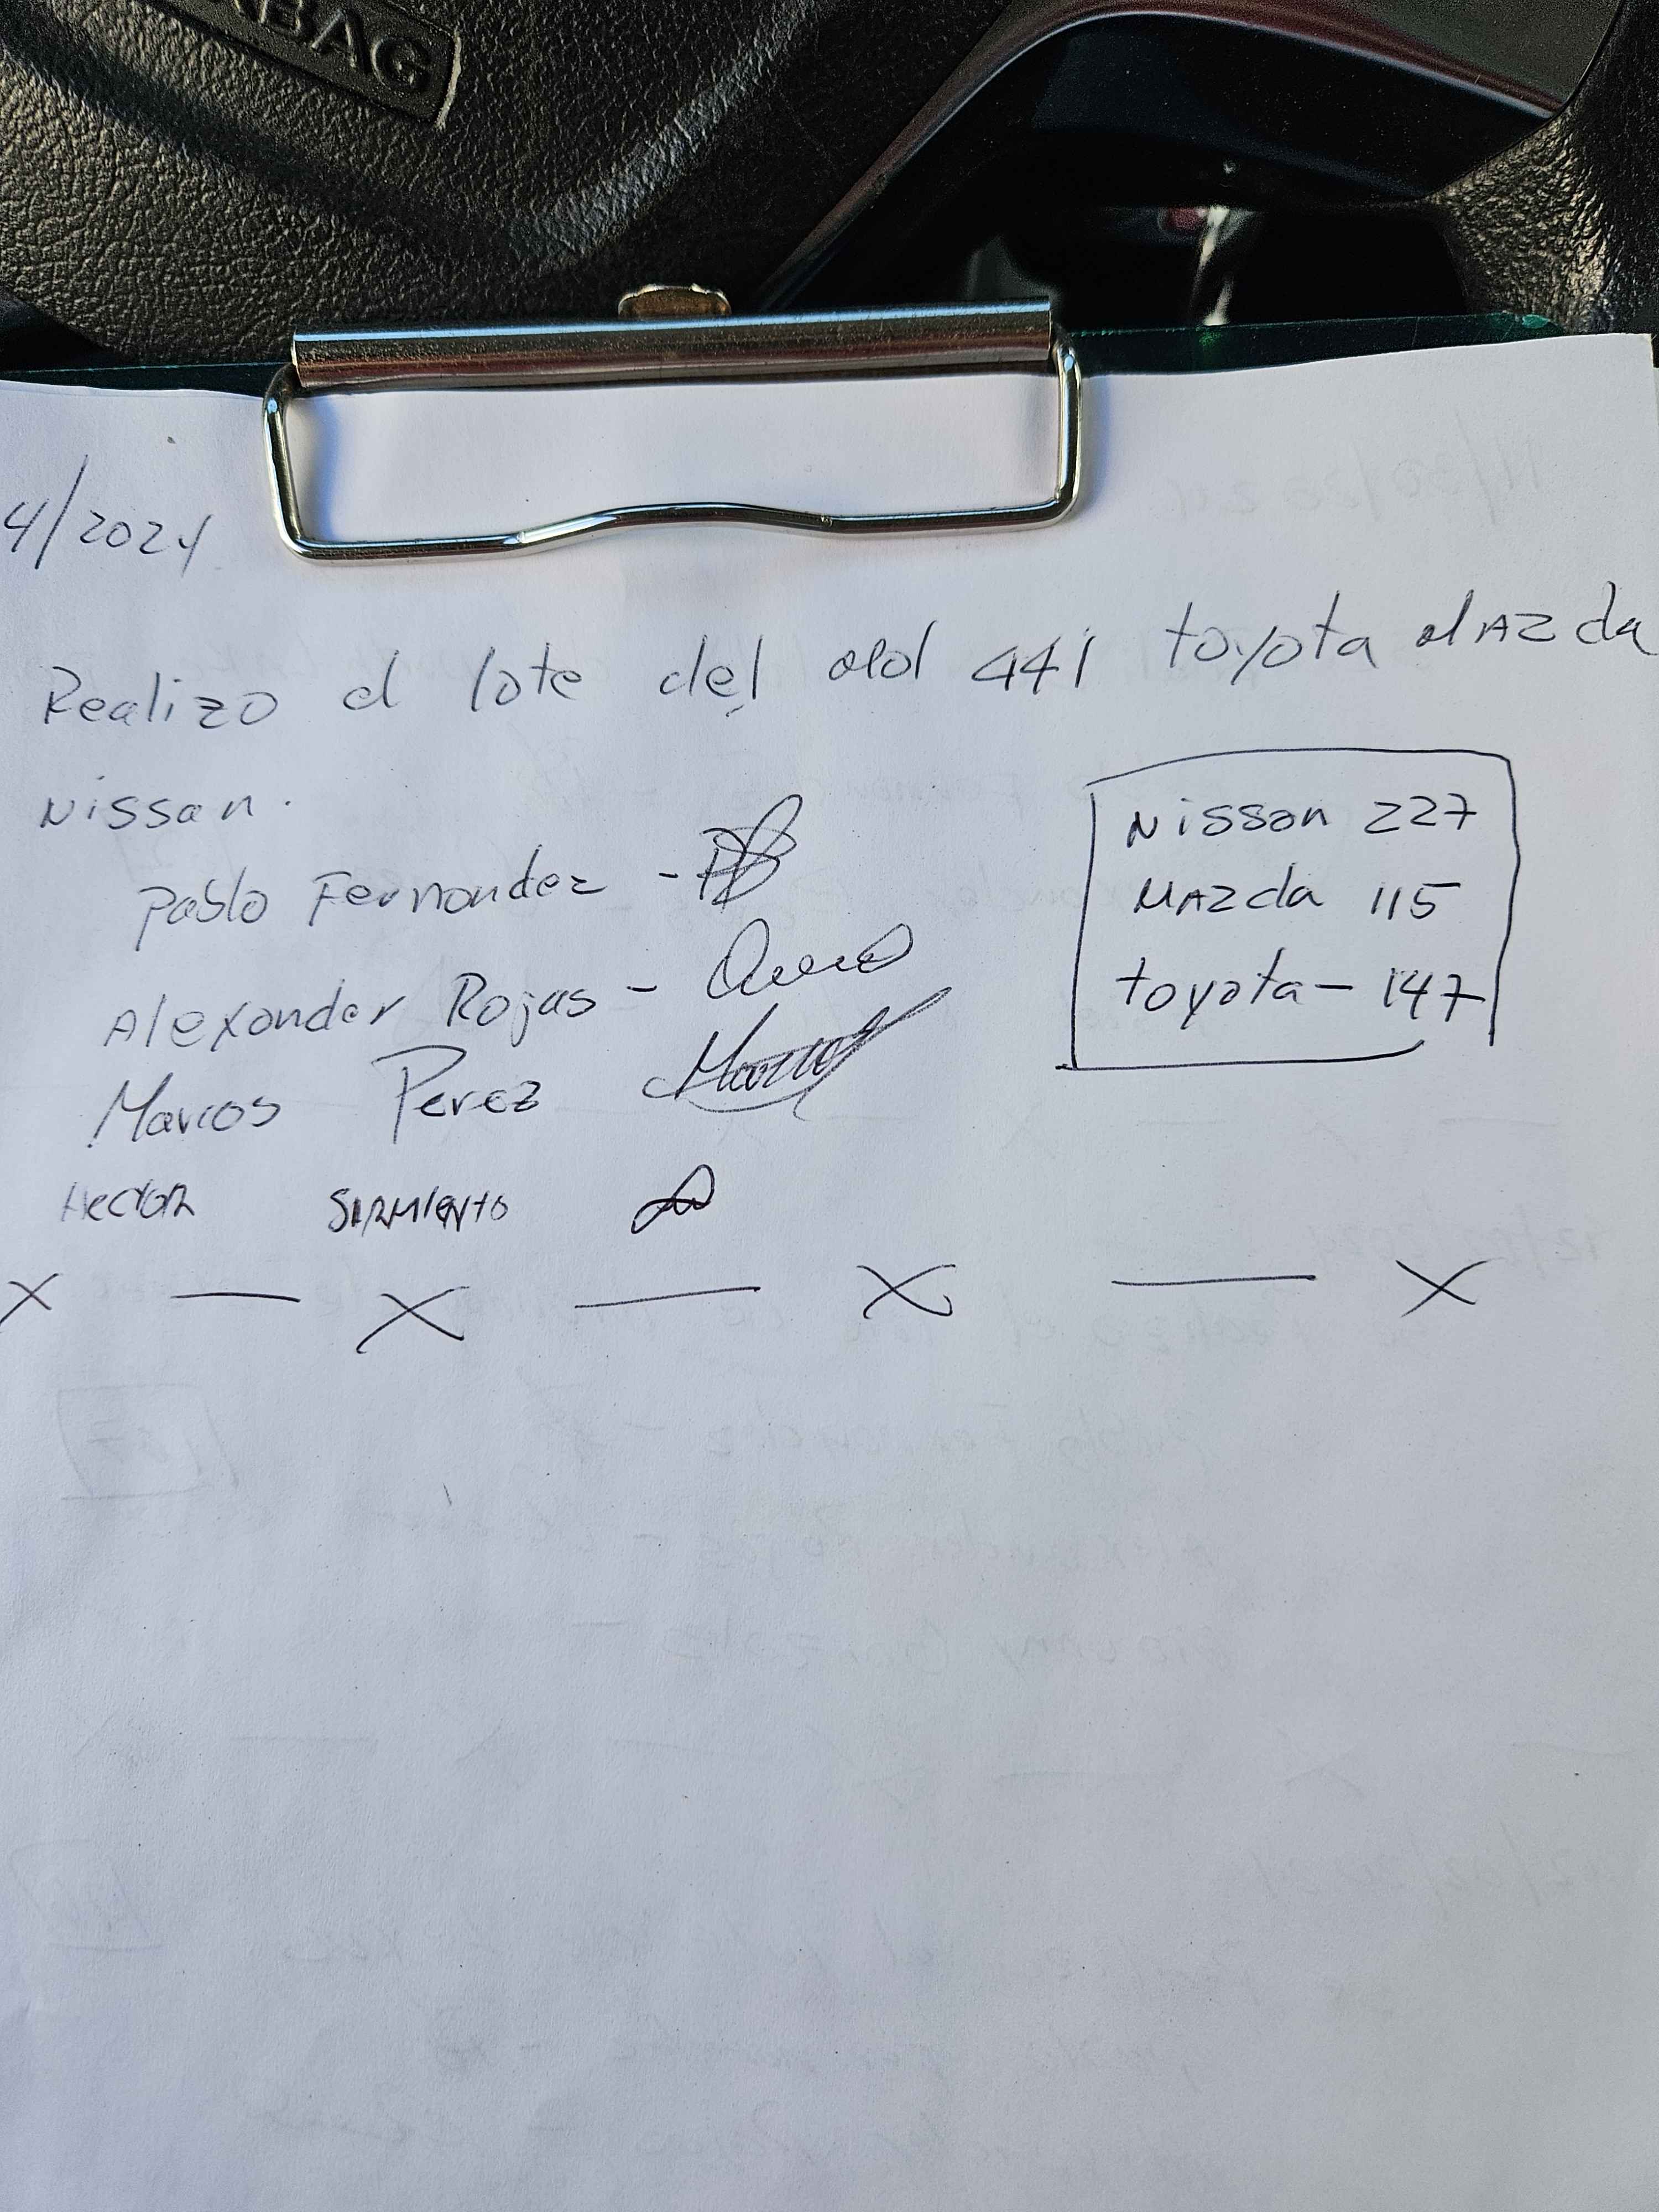 BAG
4/2024
Realizo el lote del old 441 toyota MAZda
Nissan.
Pablo Fernandez -
Alexander Rojas -
Marcos Perez
Hector SARMIENTO
X — X — X — X
Nissan 227
MAZda 115
toyota - 147